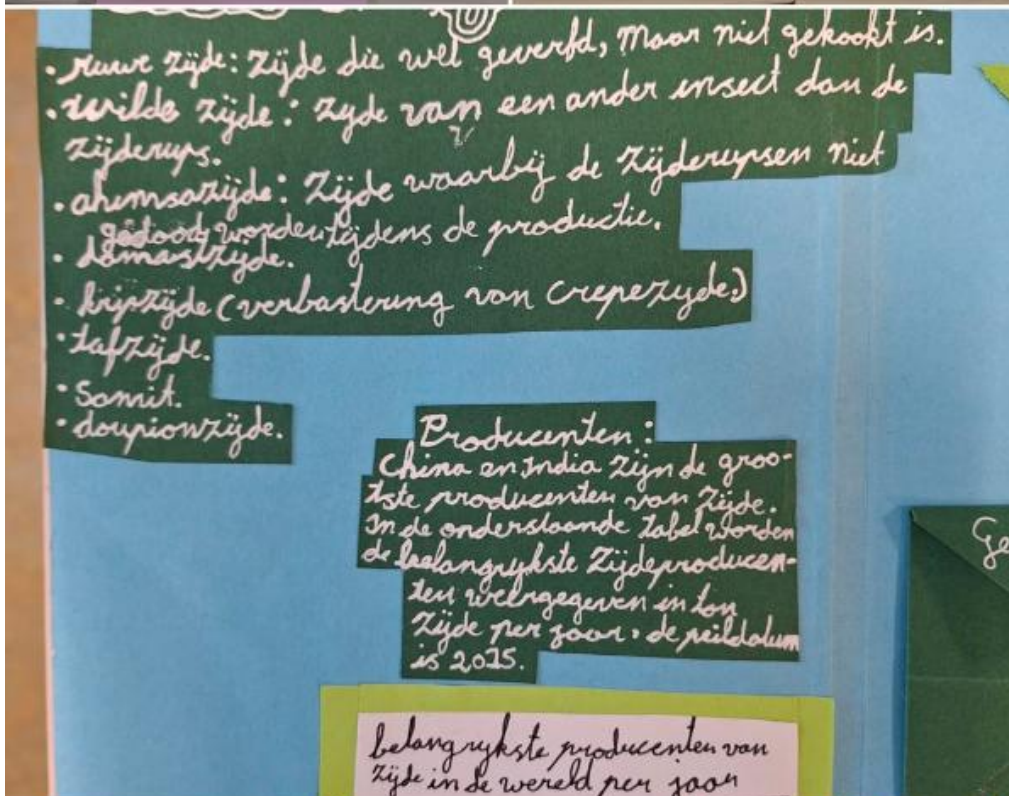 • ruwe zijde: zijde die wel geverfd, maar niet gekookt is.
• wilde zijde: zyde van een ander insect dan de
zijderups.
• ahimsazijde: zijde waarbij de zijderupsen niet
gedood worden tijdens de productie.
• damastzijde.
• kripzijde (verbastering van crepezyde.)
• tafzijde.
• Samit.
• doupionzijde.
Producenten:
China en India zijn de groo-
tste producenten van zijde.
In de onderstaande tabel worden
de belangrykste zijdeproducen-
ten weergegeven in ton
zijde per jaar. de peildatum
is 2015.
Ge
belangrykste producenten van
zijde in de wereld per jaar